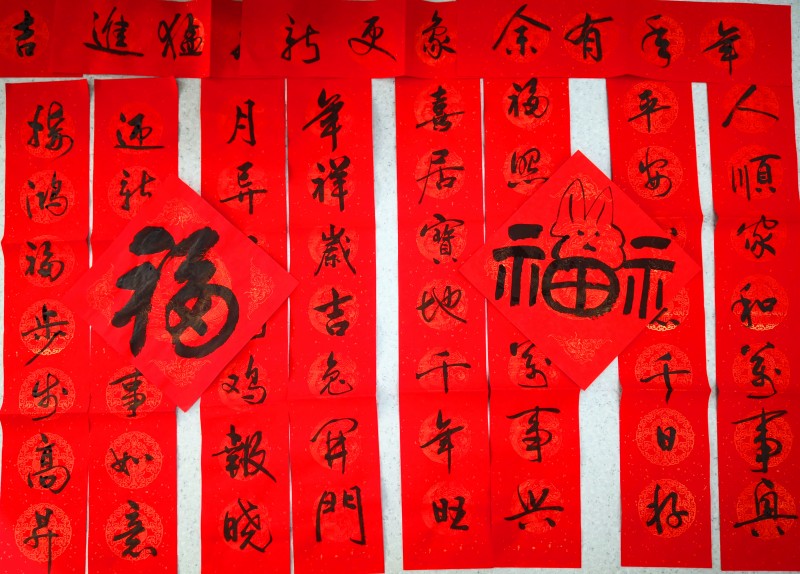 年年有余
象更新
猛進
吉
人順家和萬事興
平安
千日好
福照
萬事兴
喜居寶地千年旺
年祥歲吉兔開門
月异
鸡報晓
迎新
事如意
揚鴻福步步高昇
福
福